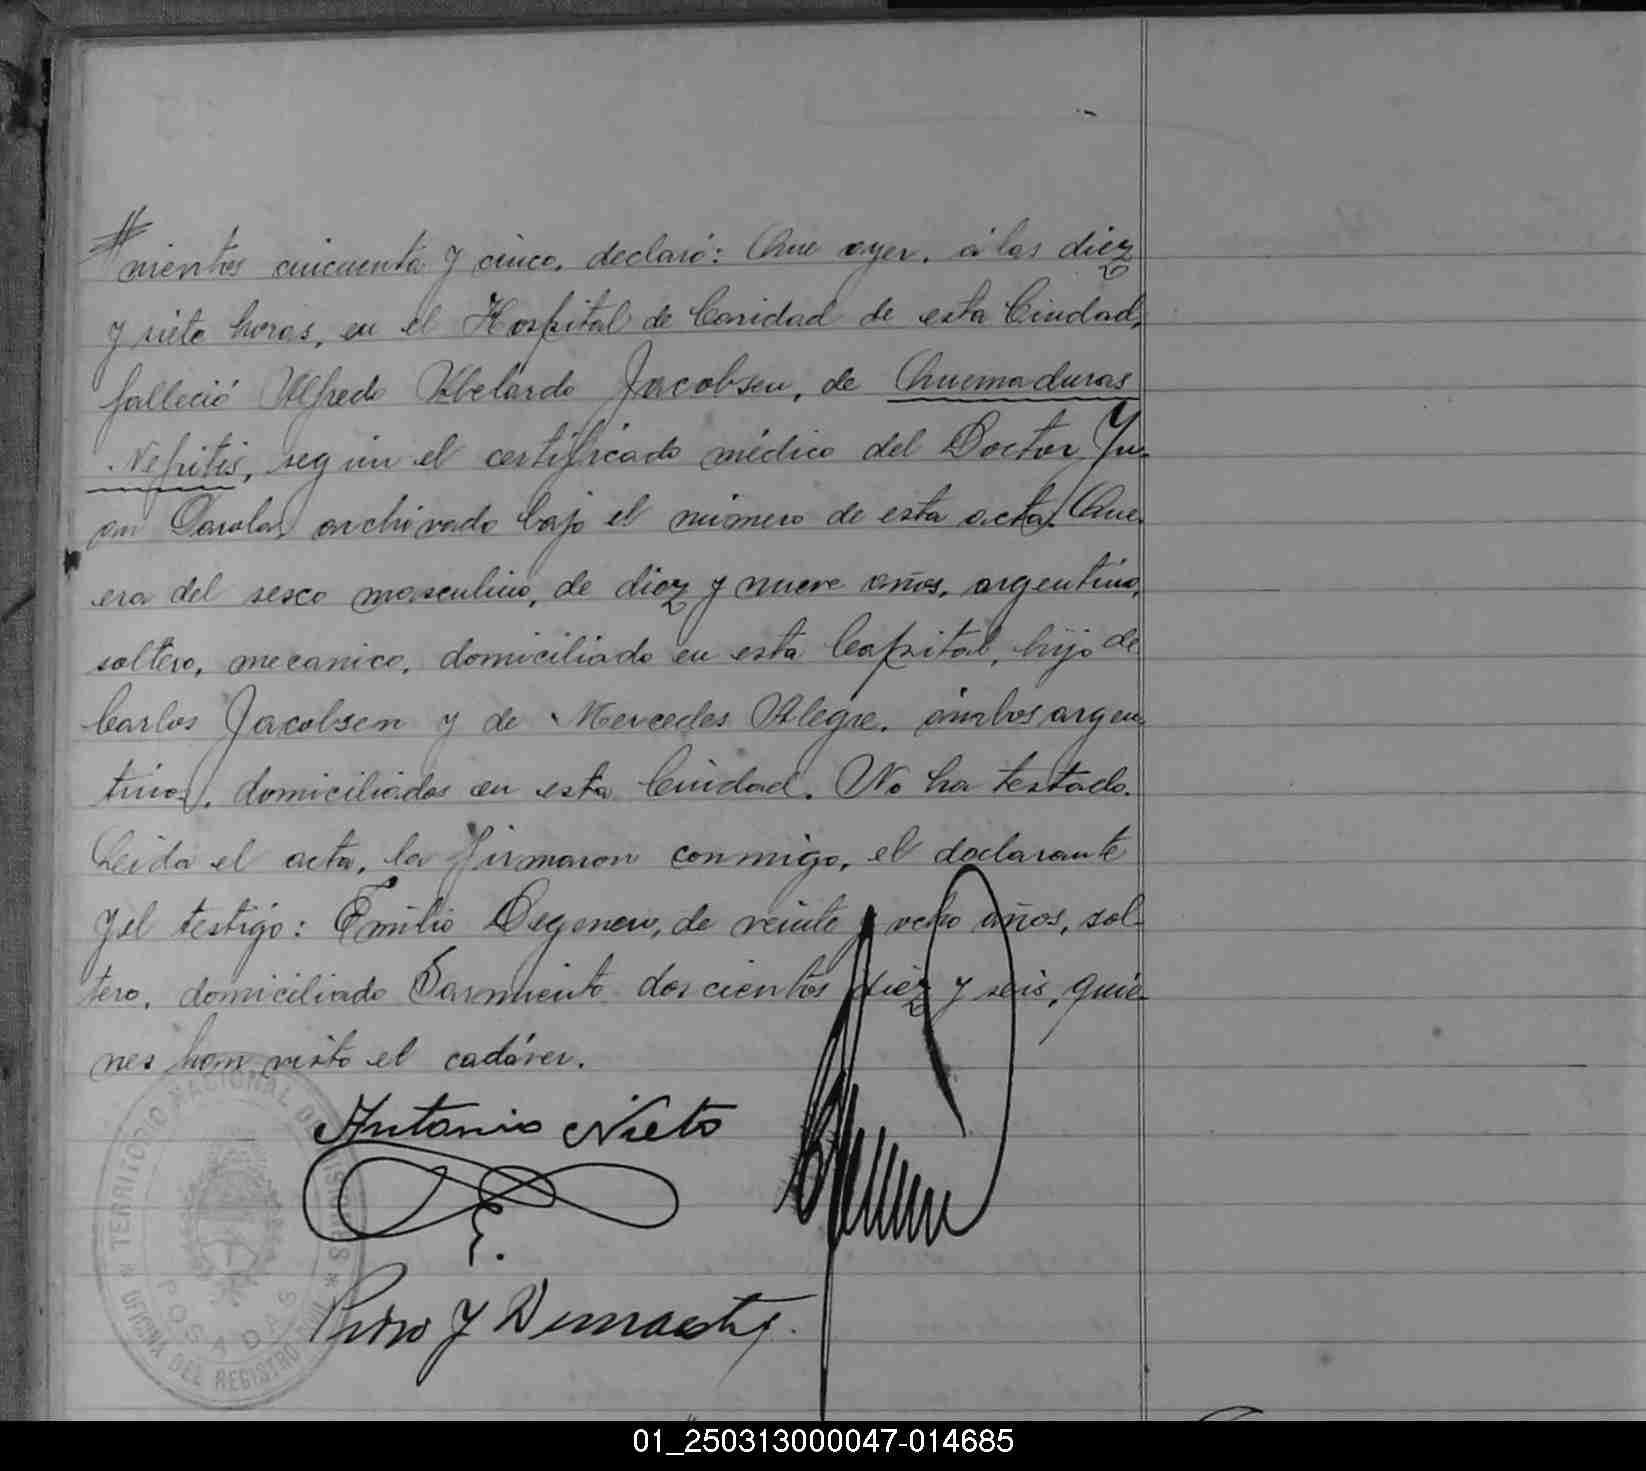 nientos cincuenta y cinco, declaró: Que ayer, á las diez
y siete horas, en el Hospital de Caridad de esta Ciudad,
falleció Alfredo Abelardo Jacobsen, de Quemaduras
Nefritis, según el certificado médico del Doctor Ju-
an archivado bajo el número de esta acta. Que
era del sexo masculino, de diez y nueve años, argentino,
soltero, mecanico, domiciliado en esta Capital, hijo de
Carlos Jacobsen y de Mercedes Alegre, ámbos argen-
tinos, domiciliados en esta Ciudad. No ha testado.
Leida el acta, la firmaron conmigo, el declarante
y el testigo: Emilio de veinte y ocho años, sol-
tero, domiciliado Sarmiento doscientos diez y seis, quie-
nes han visto el cadáver.
Antonio Nieto
Pedro J
TERRITORIO NACIONAL DE MISIONES
POSADAS
OFICINA DEL REGISTRO CIVIL
01_250313000047-014685